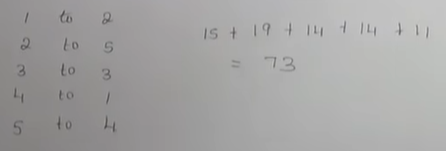 1 to 2
2 to 5
3 to 3
4 to 1
5 to 4
15 + 19 + 14 + 14 + 11
= 73